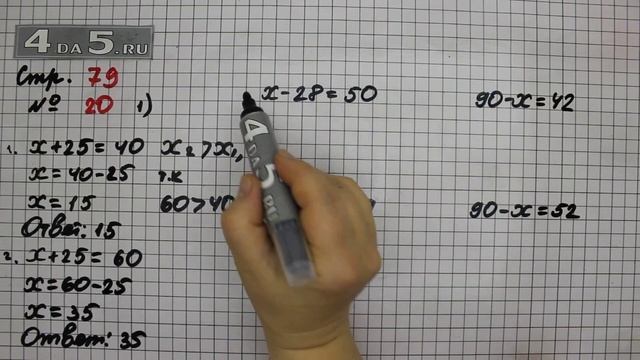 4 DA 5.RU
Стр. 79
№ 20 1)
1. x+25=40
x=40-25
x=15
Ответ: 15
2. x+25=60
x=60-25
x=35
Ответ: 35
x₂>x₁,
т.к
60>40
x-28=50
90-x=42
90-x=52
4 DA 5.RU